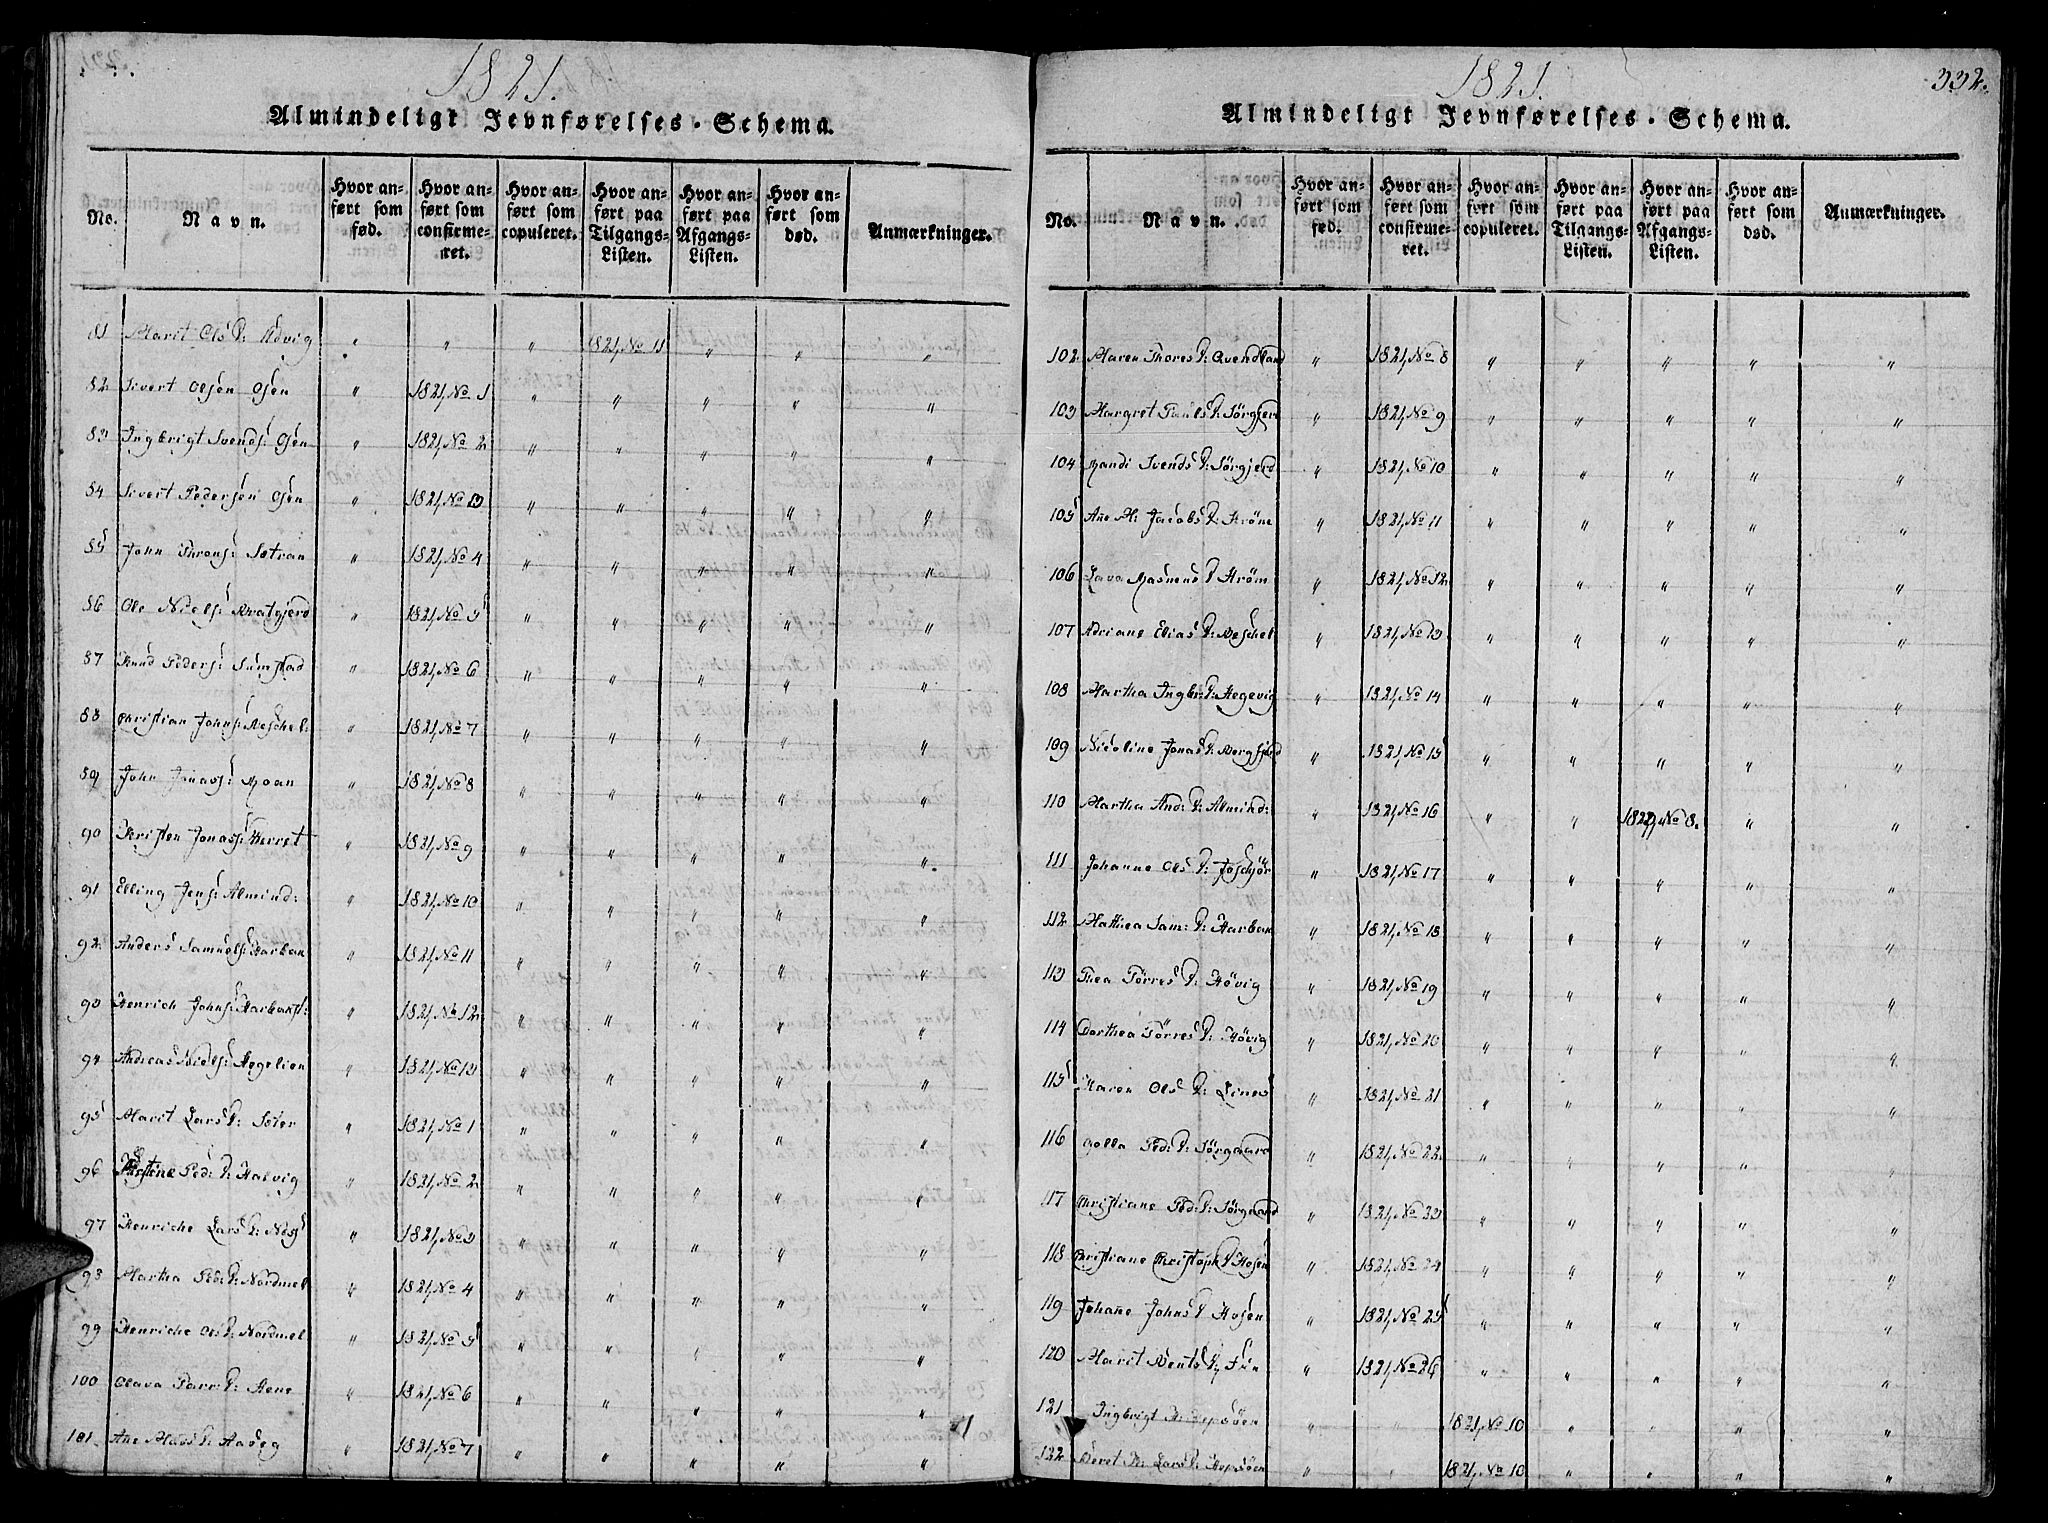 1821.
Almindeligt Jevnførelses-Schema.
No. Navn. Hvor anført som fød. Hvor anført som confirmeret. Hvor anført som copuleret. Hvor anført paa Tilgangs-Listen. Hvor anført paa Afgangs-Listen. Hvor anført som død. Anmærkninger.
81 Marit Ols D: " " " 1821, No 11 " " "
82 Sivert Olsen Osen " 1821, No 1 " " " " "
83 Ingbrigt Svends: Osen " 1821, No 2 " " " " "
84 Sivert Pedersen Osen " 1821, No 3 " " " " "
85 John Throns: Sætran " 1821, No 4 " " " " "
86 Ole Niels: Brattgjerd " 1821, No 5 " " " " "
87 Knud Peders: Sumstad " 1821, No 6 " " " " "
88 Christian Johns: Beschel: " 1821, No 7 " " " " "
89 John Jonass: Moan " 1821, No 8 " " " " "
90 Kristen Jonass: " 1821, No 9 " " " " "
91 Elling Jens: Almind: " 1821, No 10 " " " " "
92 Anders Samuels: Harban " 1821, No 11 " " " " "
93 Henrich Johns: Harbakst: " 1821, No 12 " " " " "
94 Andreas Niels: Hegelien " 1821, No 13 " " " " "
95 Marit Lars D: Seter " 1821, No 1 " " " " "
96 Ped: D: Halvig " 1821, No 2 " " " " "
97 Henriche Lars D: Ness " 1821, No 3 " " " " "
98 Martha Ped: D: Nordmel " 1821, No 4 " " " " "
99 Henriche Ols D: Nordmel " 1821, No 5 " " " " "
100 Olava D: Aune " 1821, No 6 " " " " "
101 Ane Mads D: " 1821, No 7 " " " " "
332.
1821.
Almindeligt Jevnførelses-Schema.
No. Navn. Hvor anført som fød. Hvor anført som confirmeret. Hvor anført som copuleret. Hvor anført paa Tilgangs-Listen. Hvor anført paa Afgangs-Listen. Hvor anført som død. Anmærkninger.
102 Maren Thores D: Qvendland " 1821, No 8 " " " " "
103 Margret Pauls D: Sørgjerd " 1821, No 9 " " " " "
104 Mandi Svends D: Sørgjerd " 1821, No 10 " " " " "
105 Ane M: Jacobs D: " 1821, No 11 " " " " "
106 Lava D: Strøm " 1821, No 12 " " " " "
107 Adriane Elias D: Beschel " 1821, No 13 " " " " "
108 Martha Ingbr: D: Hegevig " 1821, No 14 " " " " "
109 Nicoline Jonas D: Bergfjord " 1821, No 15 " " " " "
110 Martha And: D: Almind: " 1821, No 16 " " 1822, No 8. " "
111 Johanne Ols D: " 1821, No 17 " " " " "
112 Mathea Sam: D: Harban " 1821, No 18 " " " " "
113 Thea Tørres D: Høvig " 1821, No 19 " " " " "
114 Dorthea Tørres D: Høvig " 1821, No 20 " " " " "
115 Maren Ols D: Lines " 1821, No 21 " " " " "
116 Golla Ped: D: Sørgaard " 1821, No 22 " " " " "
117 Christiane Ped: D: Sørgaard " 1821, No 23 " " " " "
118 Christiane Christoph D Hosen " 1821, No 24 " " " " "
119 Johane Johns D Hosen " 1821, No 25 " " " " "
120 Marit Bents D: " 1821, No 26 " " " " "
121 Ingbrigt Hopsøen " " 1821, No 10 " " " "
122 Beret Lars D: Hopsøen " " 1821, No 10 " " " "